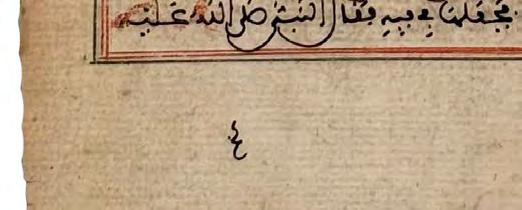 فجعلها في فيه فقال النبي صلى الله عليه
ع